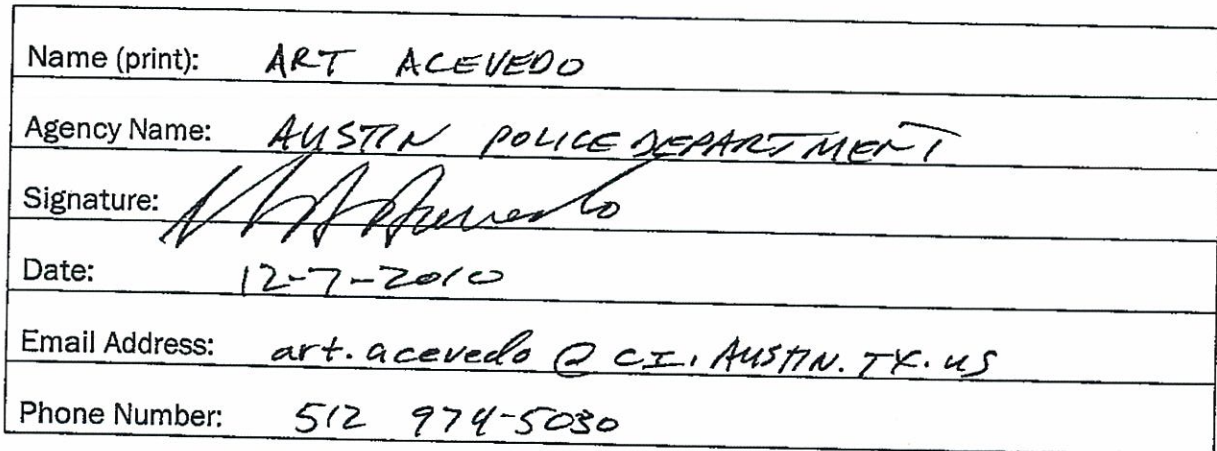 Name (print): ART ACEVEDO
Agency Name: AUSTIN POLICE DEPARTMENT
Signature:
Date: 12-7-2010
Email Address: art.acevedo @ CI.AUSTIN.TX.US
Phone Number: 512 974-5030